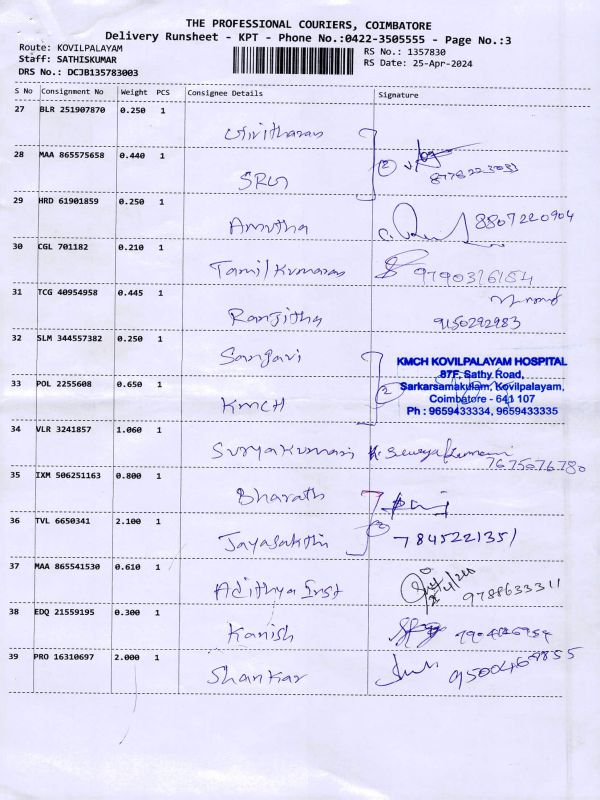 THE PROFESSIONAL COURIERS, COIMBATORE
Delivery Runsheet - KPT - Phone No.:0422-3505555 - Page No.:3
Route: KOVILPALAYAM
Staff: SATHISKUMAR
DRS No.: DCJB135783003
RS No.: 1357830
RS Date: 25-Apr-2024
S No Consignment No Weight PCS Consignee Details Signature
27 BLR 251907870 0.250 1
28 MAA 865575658 0.440 1
SRG 2
29 HRD 61901859 0.250 1
Amutha 8807220904
30 CGL 701182 0.210 1
Tamilkumaran 9790316154
31 TCG 40954958 0.445 1
Ranjitha 9150292983
32 SLM 344557382 0.250 1
Sangavi
33 POL 2255608 0.650 1
KMCH 2
KMCH KOVILPALAYAM HOSPITAL
87F, Sathy Road,
Sarkarsamakulam, Kovilpalayam,
Coimbatore - 641 107
Ph : 9659433334, 9659433335
34 VLR 3241857 1.060 1
Suryakumari 7675076780
35 IXM 506251163 0.800 1
Bharath
36 TVL 6650341 2.100 1
Jayasakthi 2 7845221351
37 MAA 865541530 0.610 1
Adithya Inst 9788633311
38 EDQ 21559195 0.300 1
Kanish
39 PRO 16310697 2.000 1
Shankar